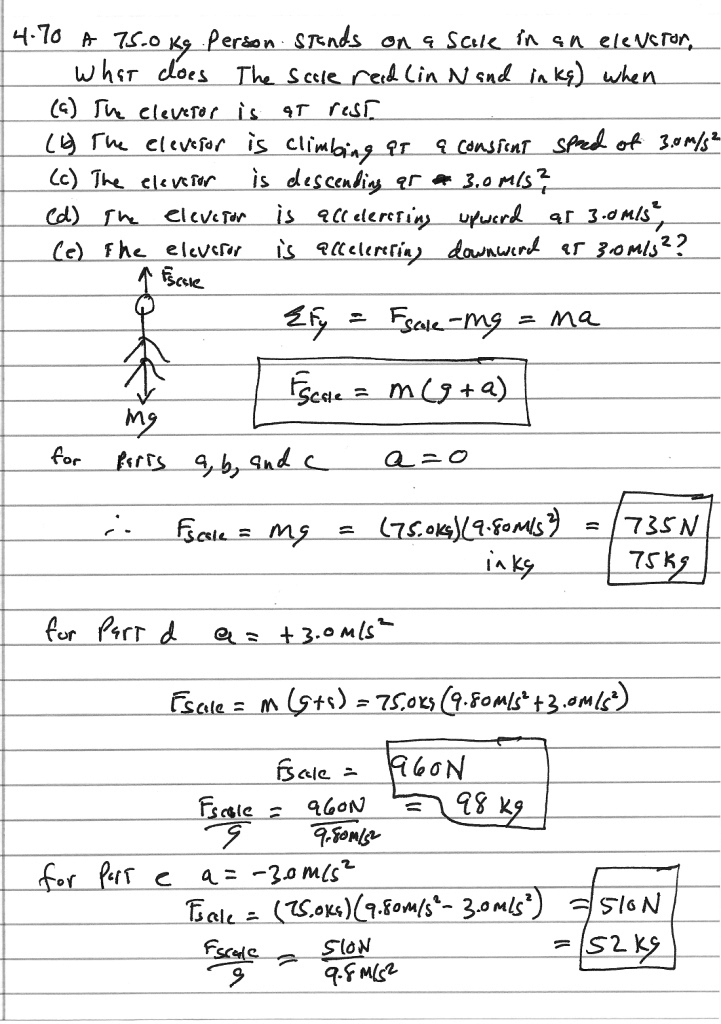 4-70 A 75.0 kg person stands on a scale in an elevator,
What does The scale read (in N and in kg) when
(a) The elevator is at rest.
(b) The elevator is climbing at a constant speed of 3.0 m/s²
(c) The elevator is descending at 3.0 m/s²,
(d) The elevator is accelerating upward at 3.0 m/s²,
(e) The elevator is accelerating downward at 3.0 m/s²?
Fscale
ΣFy = Fscale - mg = ma
Fscale = m(g+a)
mg
for parts a, b, and c a = 0
∴ Fscale = mg = (75.0kg)(9.80m/s²) = 735 N
in kg 75 kg
for Part d a = +3.0 m/s²
Fscale = m(g+a) = 75.0kg (9.80m/s² + 3.0m/s²)
Fscale = 960N
Fscale/g = 960N/9.80m/s² = 98 kg
for part e a = -3.0 m/s²
Fscale = (75.0kg)(9.80m/s² - 3.0m/s²) = 510 N
Fscale/g = 510N/9.8 m/s² = 52 kg